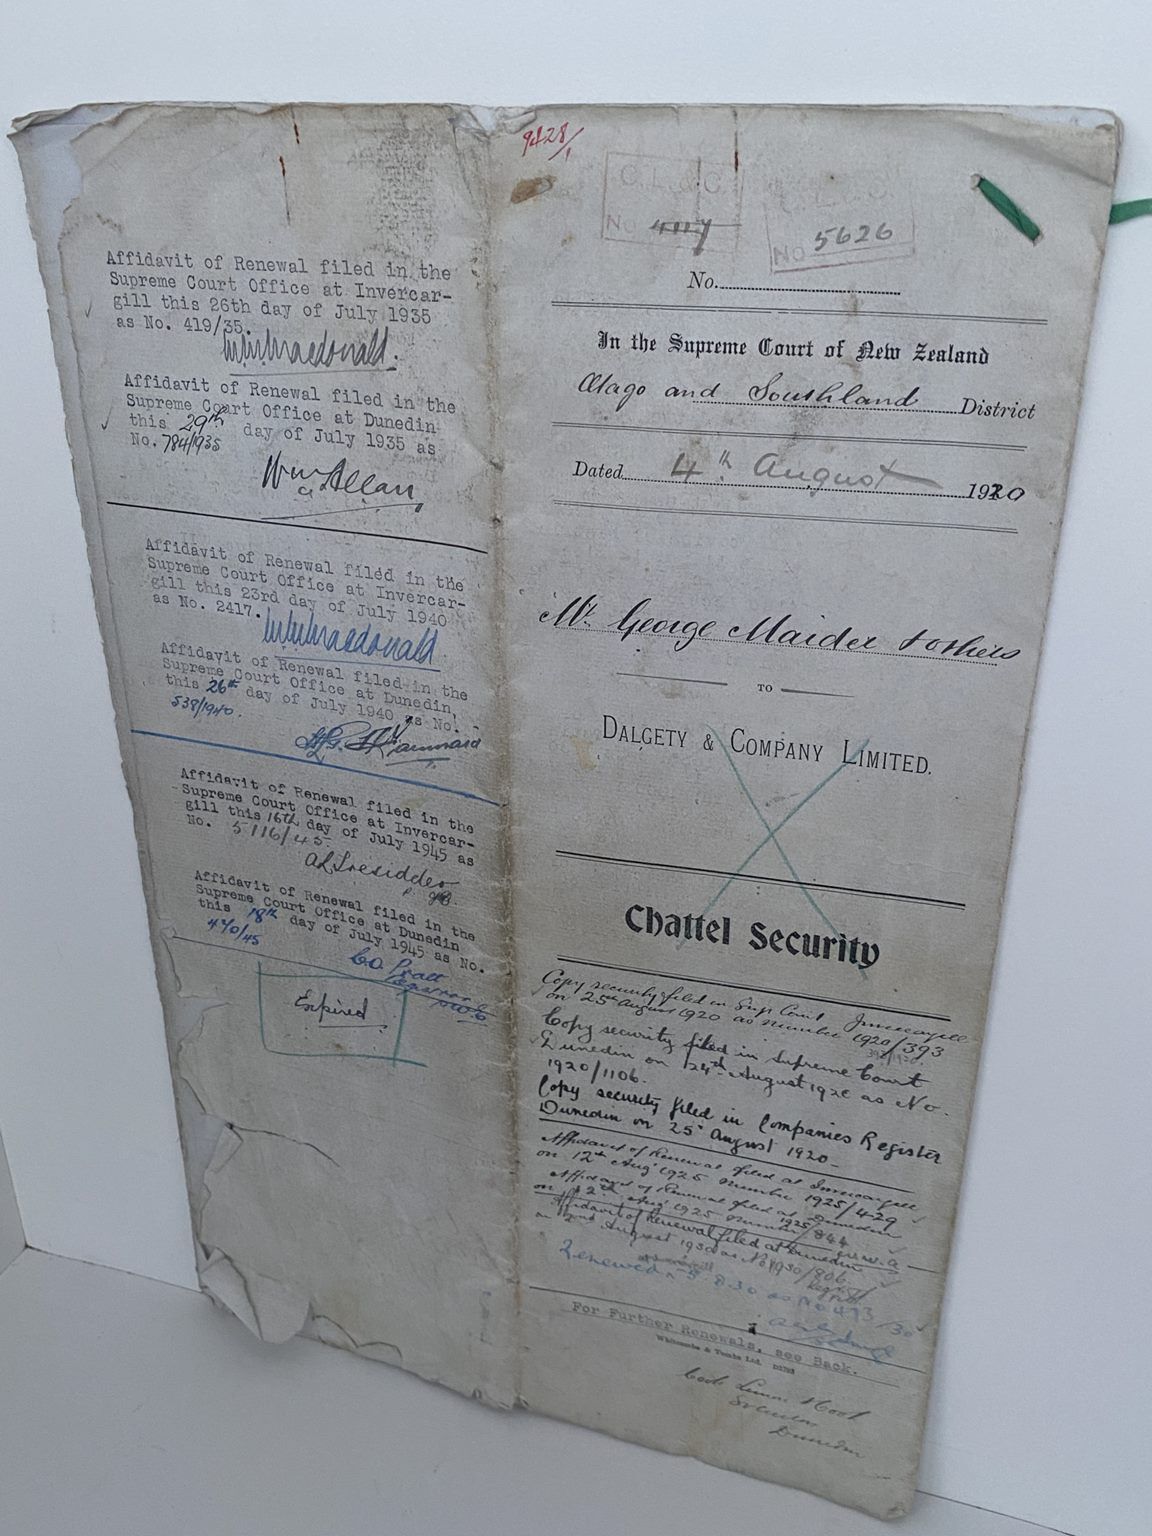 Affidavit of Renewal filed in the
Supreme Court Office at Invercar-
gill this 26th day of July 1935
as No. 419/35.
Affidavit of Renewal filed in the
Supreme Court Office at Dunedin
this 29th day of July 1935 as
No. 784/1935
Wm Allan
Affidavit of Renewal filed in the
Supreme Court Office at Invercar-
gill this 23rd day of July 1940
as No. 2417.
Affidavit of Renewal filed in the
Supreme Court Office at Dunedin,
this 26th day of July 1940 as No.
538/1940.
Affidavit of Renewal filed in the
Supreme Court Office at Invercar-
gill this 16th day of July 1945 as
No. 5116/45.
Affidavit of Renewal filed in the
Supreme Court Office at Dunedin
this 18th day of July 1945 as No.
470/45
Expired
9428/1
C.L.&C.
No 4117
C.L.&C.
No 5626
No.
In the Supreme Court of New Zealand
Otago and Southland District
Dated 4th August 1920
Mr. George Maider & others
TO
DALGETY & COMPANY LIMITED.
Chattel Security
Copy security filed in Sup Court Invercargill
on 25th August 1920 as number 1920/393
Copy security filed in Supreme Court
Dunedin on 24th August 1920 as No.
1920/1106.
Copy security filed in Companies Register
Dunedin on 25th August 1920
Affidavit of Renewal filed at Invercargill
on 12th Aug 1925 number 1925/429
Affidavit of Renewal filed at Dunedin
on 12th Aug 1925 number 1925/844
Affidavit of Renewal filed at Dunedin
on August 1930 as No 1930/906
Renewed 8.30 as No 493/30
For Further Renewals, see Back.
Whitcombe & Tombs Ltd.
Solicitors
Dunedin